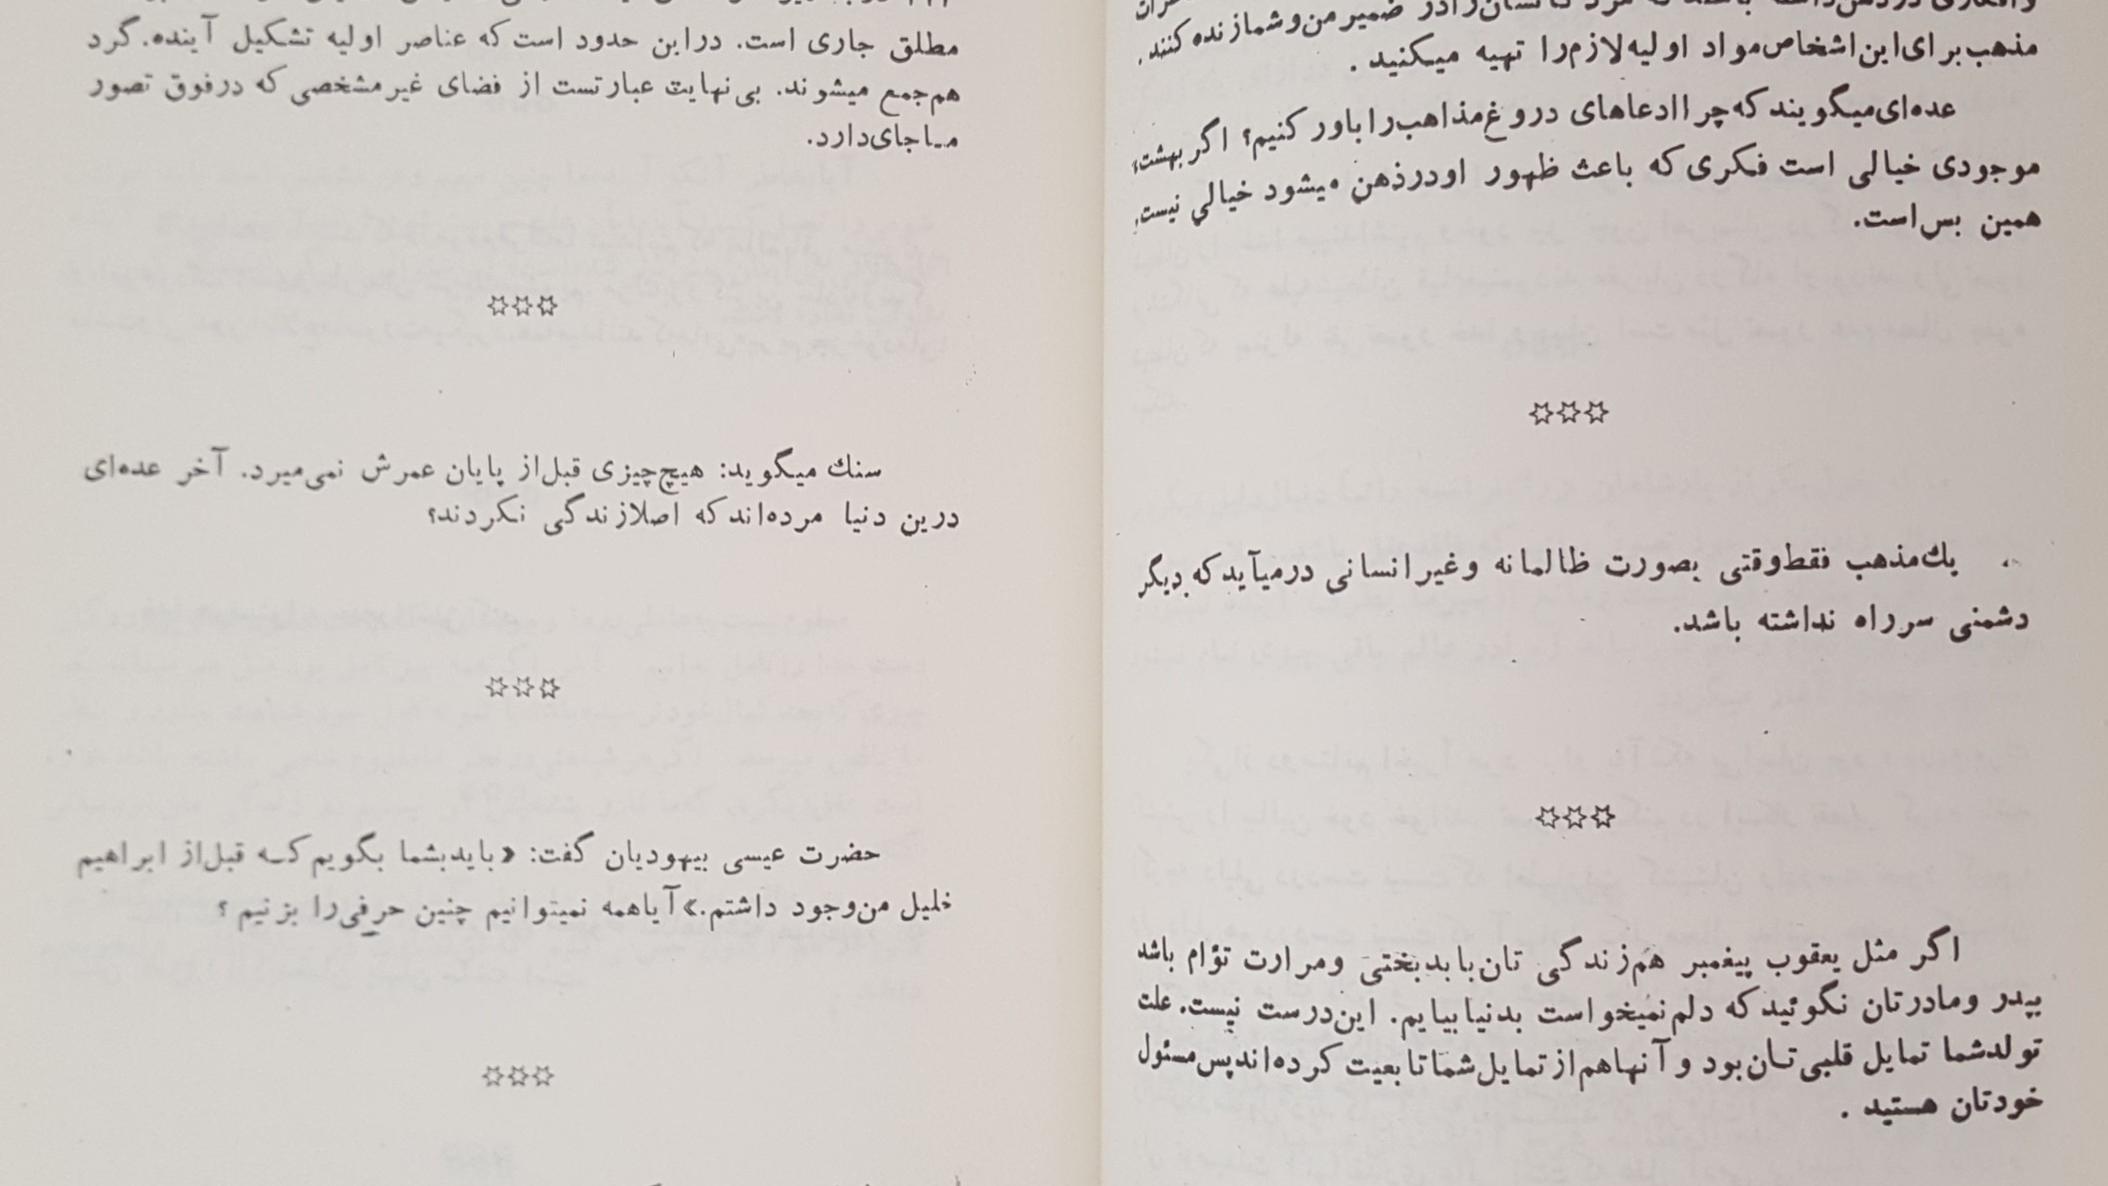 مذهب برای این اشخاص مواد اولیه لازم را تهیه میکنید .
عده‌ای میگویند که چرا ادعاهای دروغ مذاهب را باور کنیم؟ اگر بهشت،
موجودی خیالی است فکری که باعث ظهور او در ذهن میشود خیالی نیست،
همین بس است.
☆☆☆
یك مذهب فقط وقتی بصورت ظالمانه وغیر انسانی درمیآید که دیگر
دشمنی سر راه نداشته باشد.
☆☆☆
اگر مثل یعقوب پیغمبر هم زندگی تان با بدبختی ومرارت توٴام باشد
بپدر ومادرتان نگوئید که دلم نمیخواست بدنیا بیایم. این درست نیست. علت
تولد شما تمایل قلبی تان بود و آنها هم از تمایل شما تابعیت کرده‌اند پس مسئول
خودتان هستید .
مطلق جاری است. دراین حدود است که عناصر اولیه تشکیل آینده. گرد
هم جمع میشوند. بی‌نهایت عبارتست از فضای غیر مشخصی که در فوق تصور
ما جای دارد.
☆☆☆
سنك میگوید: هیچ چیزی قبل از پایان عمرش نمی‌میرد. آخر عده‌ای
درین دنیا مرده‌اند که اصلا زندگی نکردند؟
☆☆☆
حضرت عیسی بیهودیان گفت: «باید بشما بگویم که قبل از ابراهیم
خلیل من وجود داشتم.» آیا همه نمیتوانیم چنین حرفی را بزنیم ؟
☆☆☆